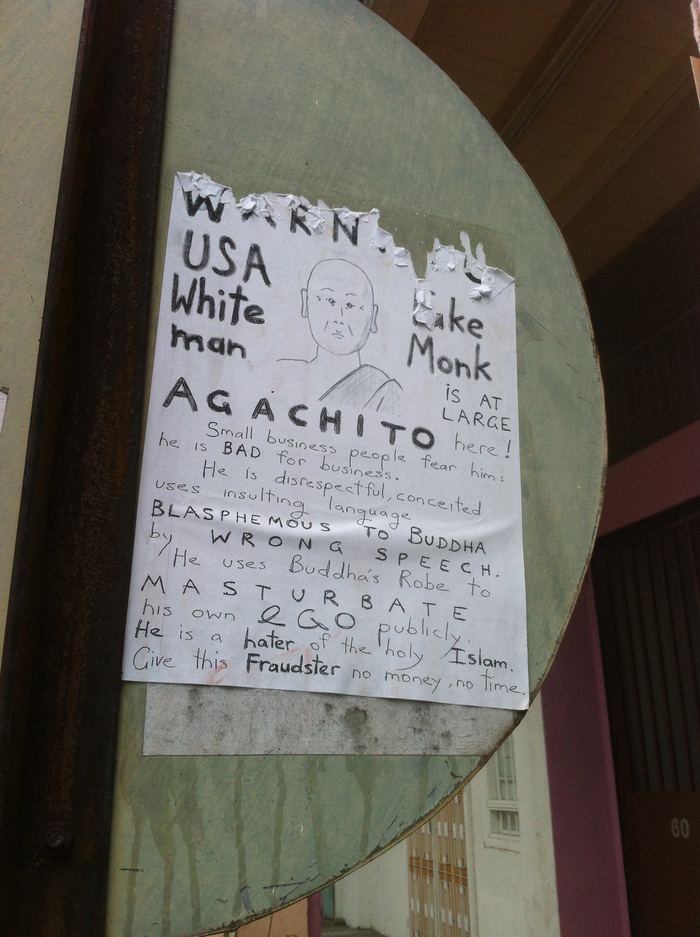 WARNING
USA
White
man
Fake
Monk
is AT
LARGE
AGACHITO here!
Small business people fear him:
he is BAD for business.
He is disrespectful, conceited
uses insulting language
BLASPHEMOUS TO BUDDHA
by WRONG SPEECH.
He uses Buddha's Robe to
MASTURBATE
his own eGO publicly.
He is a hater of the holy Islam.
Give this Fraudster no money, no time.
60